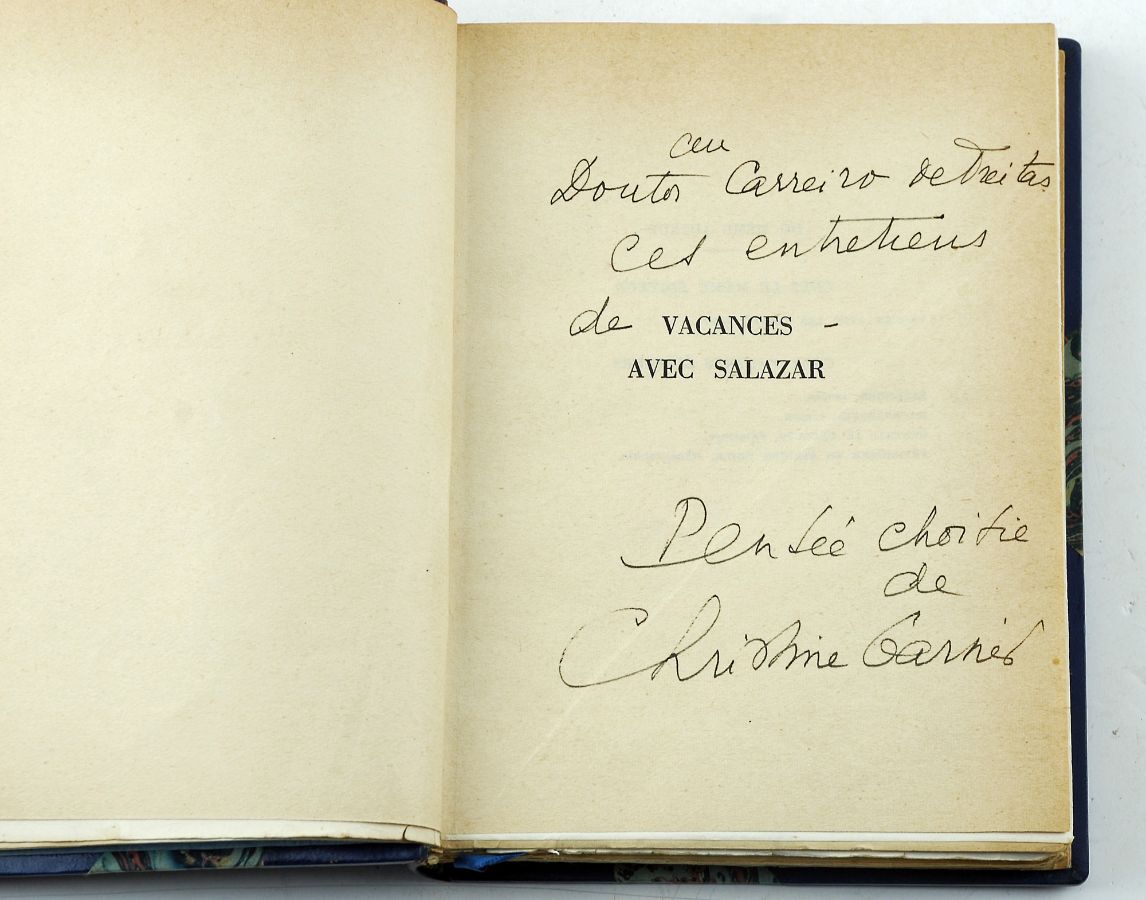 au
Doutor Carreiro de Freitas
ces entretiens
de VACANCES -
AVEC SALAZAR
Pensée choisie
de
Christine Garnier